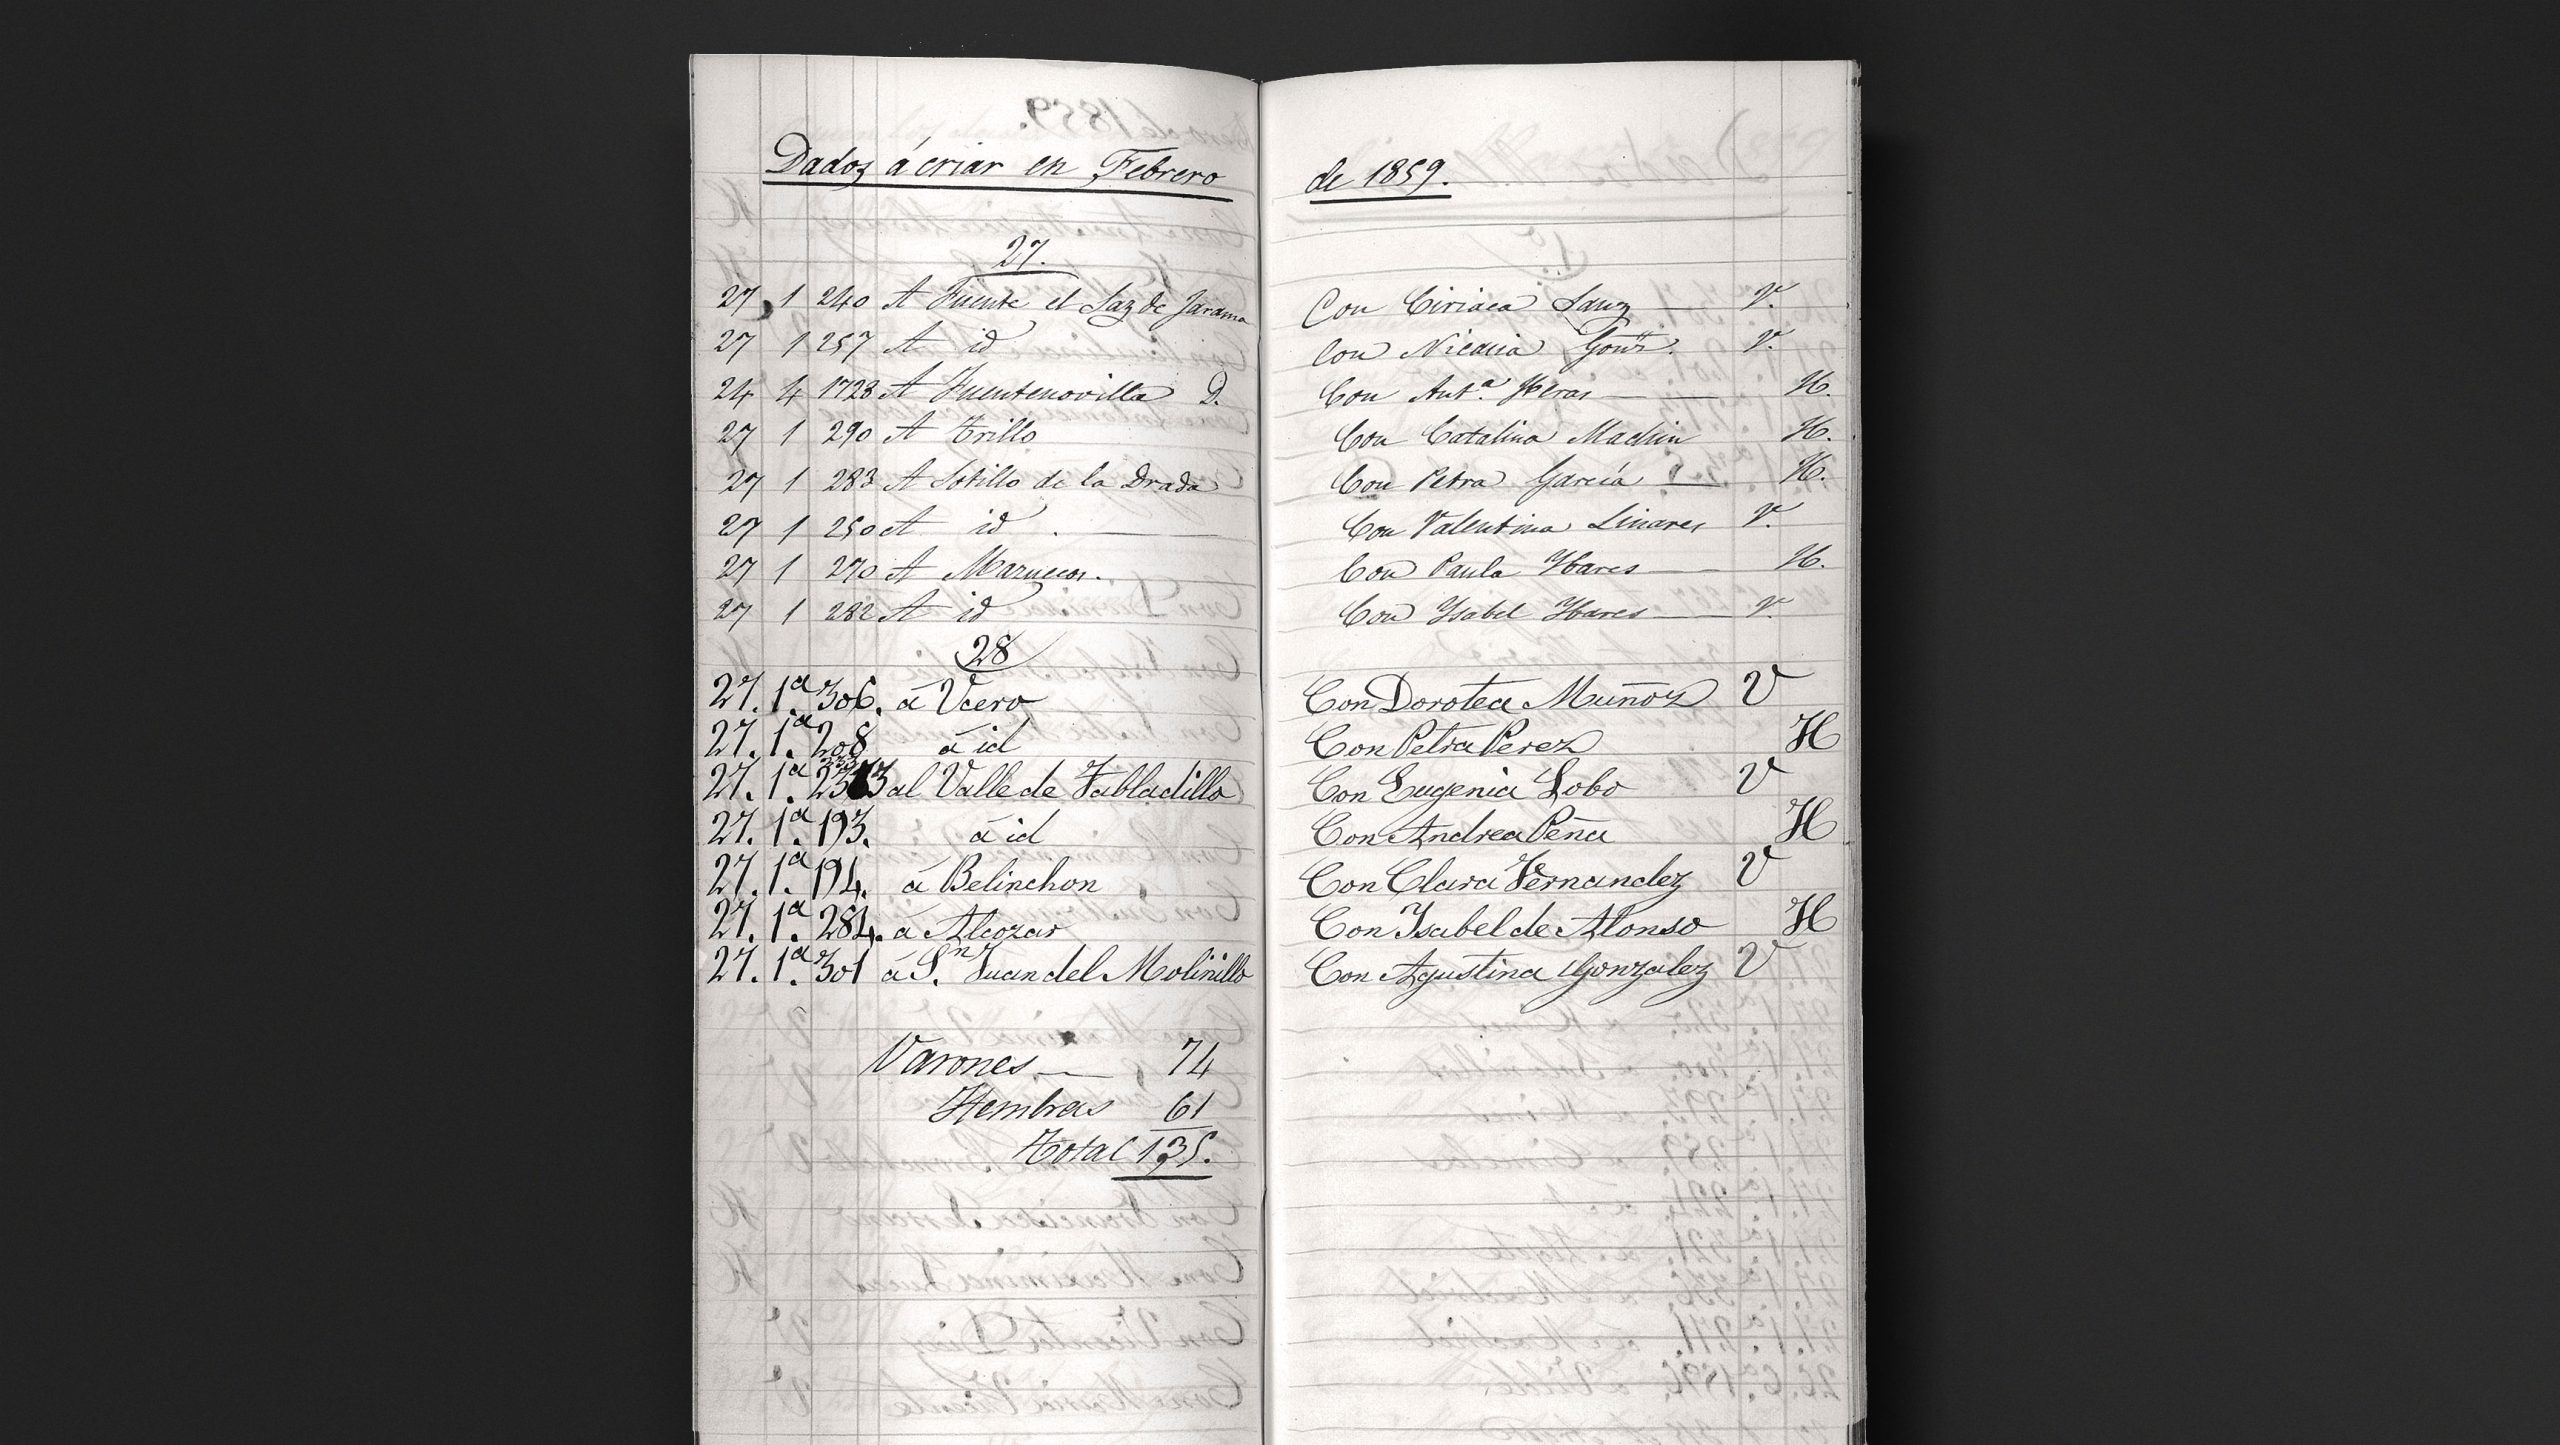 Dados á criar en Febrero de 1859.
27.
27 1 240 A Fuente el Saz de Jarama Con Ciriaca Sanz V.
27 1 257 A id Con Nicasia Gonz. V.
24 4 1723 A Fuentenovilla D. Con Ant.ª Heras H.
27 1 290 A Trillo Con Catalina Machin H.
27 1 283 A Sotillo de la Drada Con Petra García H.
27 1 250 A id. Con Valentina Linares V.
27 1 270 A Mazuecos. Con Paula Ybares H.
27 1 282 A id Con Ysabel Ybares V.
28
27. 1.ª 306. á Vcero Con Dorotea Muñoz V
27. 1.ª 208 á id Con Petra Perez H
27. 1.ª al Valle de Tabladillo Con Eugenia Lobo V
27. 1.ª 193. á id Con Andrea Peña H
27. 1.ª 194. á Belinchon Con Clara Fernandez V
27. 1.ª 284. á Alcozar Con Ysabel de Alonso H
27. 1.ª 301 á S.n Juan del Molinillo Con Agustina Gonzalez V
Varones 74
Hembras 61
Total 135.